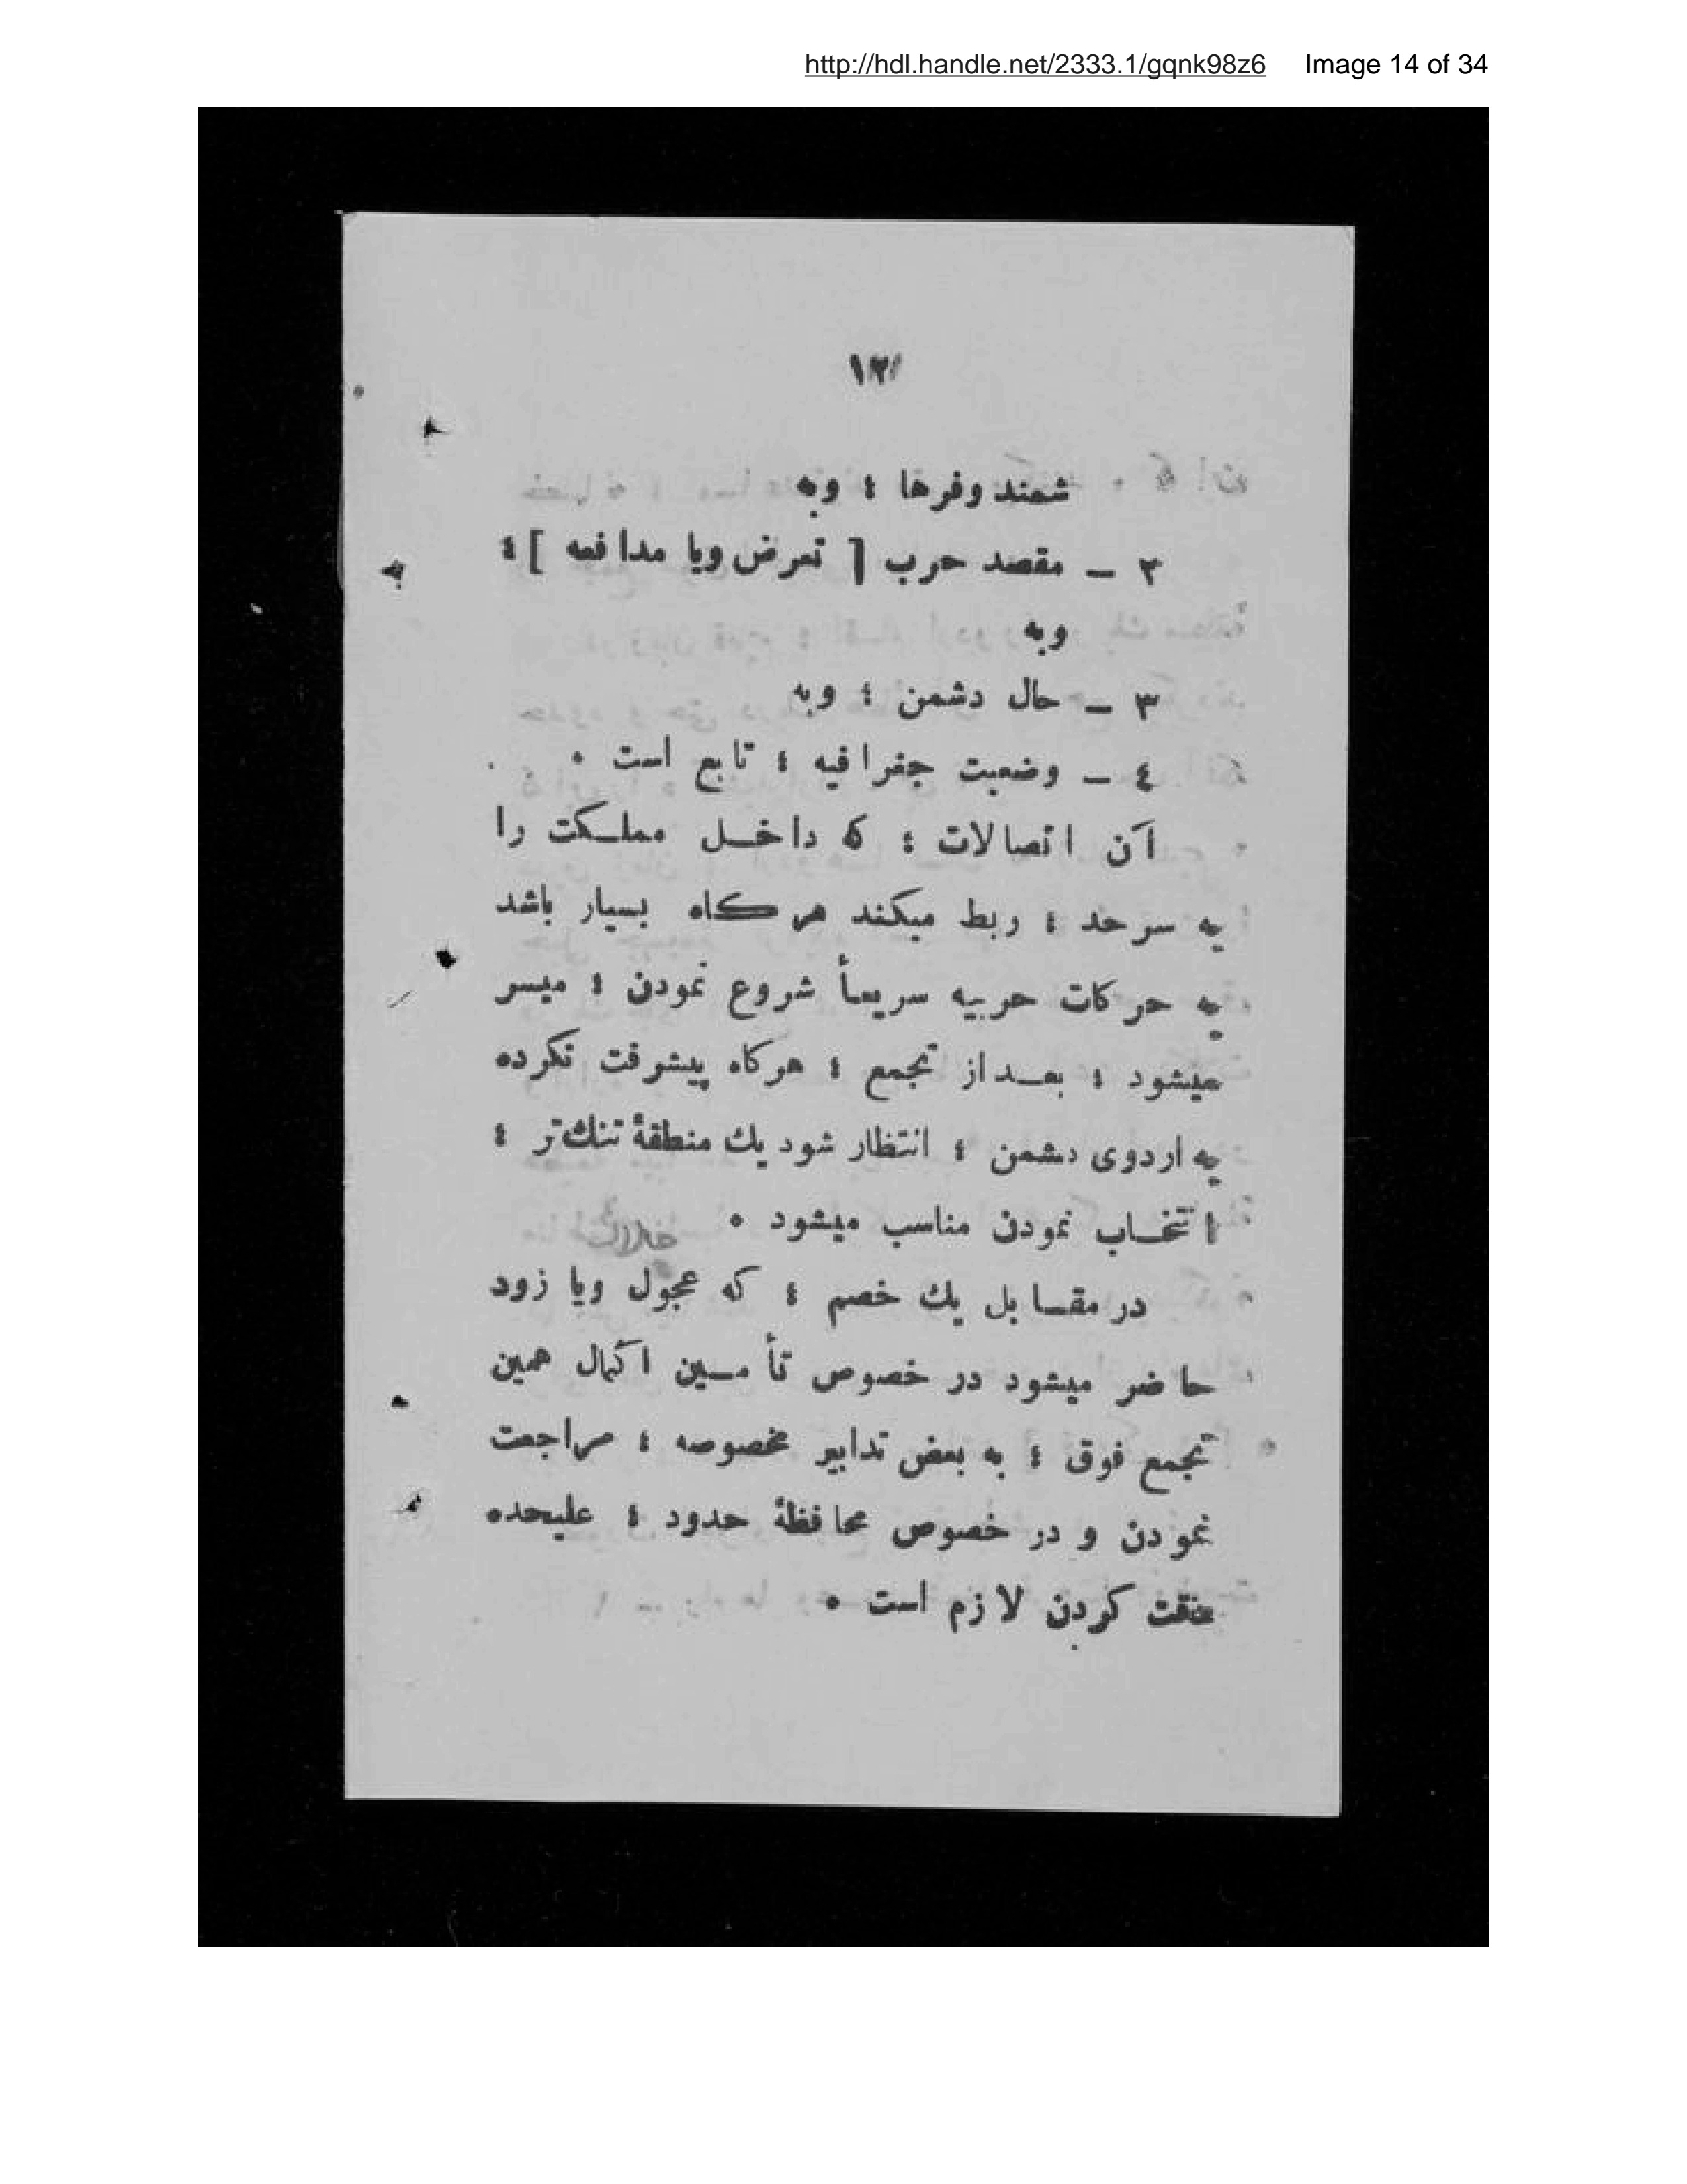 http://hdl.handle.net/2333.1/gqnk98z6 Image 14 of 34
١٢
شمند وفرها ؛ وبه
٢ — مقصد حرب [ تعرض ویا مدافعه ] ؛
وبه
٣ — حال دشمن ؛ وبه
٤ — وضعیت جغرافیه ؛ تابع است ٠
آن اتصالات ؛ که داخل مملکت را
به سرحد ؛ ربط میکند هرکاه بسیار باشد
به حرکات حربیه سریعاً شروع نمودن ؛ میسر
میشود ؛ بعد از تجمع ؛ هرکاه پیشرفت نکرده
به اردوی دشمن ؛ انتظار شود یك منطقهٔ تنك‌تر ؛
انتخاب نمودن مناسب میشود ٠
در مقابل یك خصم ؛ که عجول ویا زود
حاضر میشود در خصوص تأمین اکمال همین
تجمع فوق ؛ به بعض تدابیر مخصوصه ؛ مراجعت
نمودن و در خصوص محافظهٔ حدود ؛ علیحده
دقت کردن لازم است ٠